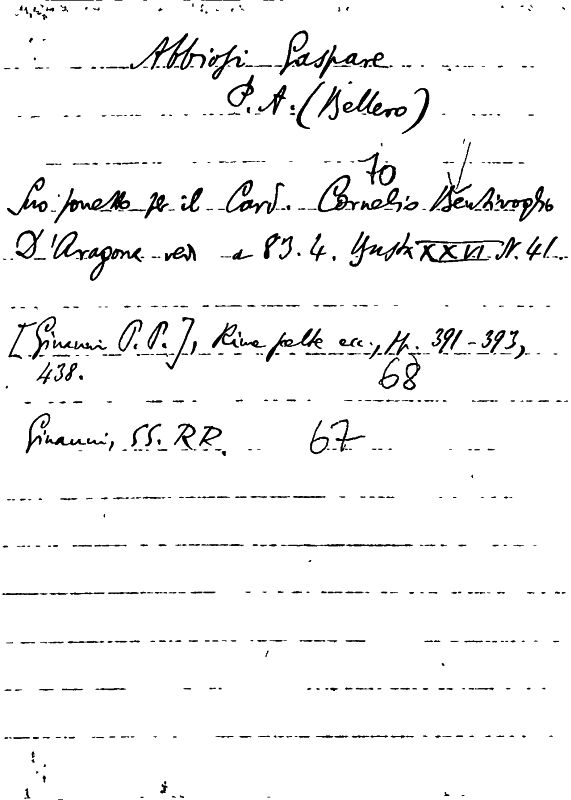 Abbiosi Gaspare
P. A. (Bellero)
70
Suo sonetto per il Card. Cornelio Bentivoglio
D'Aragona vedi a 83.4. Busta XXVI N. 41.
[Ginanni P. P.], Rime scelte ecc., pp. 391-393,
438.
68
Ginanni, SS. RR. 67